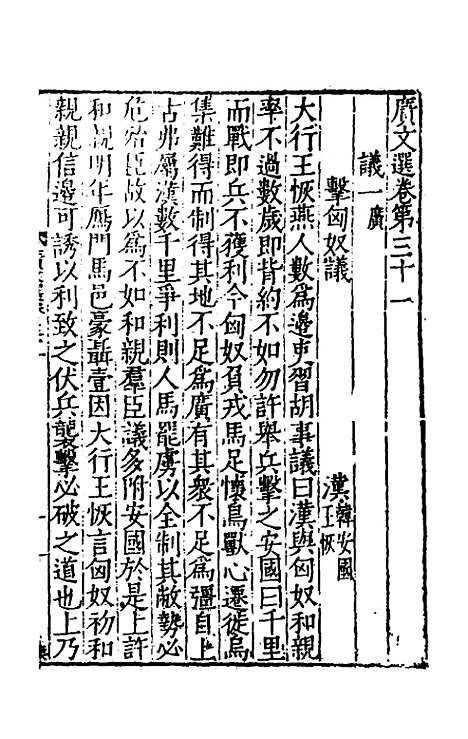 廣文選卷第三十一
議一廣
擊匈奴議
漢韓安國王恢
大行王恢燕人數爲邊吏習胡事議曰漢與匈奴和親
率不過數歲即背約不如勿許舉兵擊之安國曰千里
而戰即兵不獲利今匈奴負戎馬足懷鳥獸心遷徙鳥
集難得而制得其地不足爲廣有其衆不足爲彊自上
古弗屬漢數千里爭利則人馬罷虜以全制其敝勢必
危殆臣故以爲不如和親羣臣議多附安國於是上許
和親明年鴈門馬邑豪聶壹因大行王恢言匈奴初和
親親信邊可誘以利致之伏兵襲擊必破之道也上乃